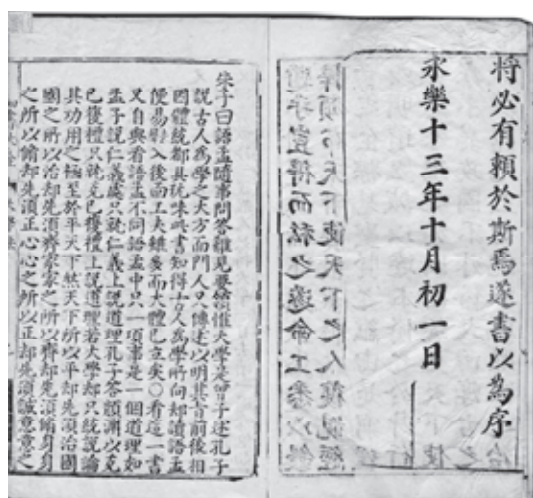 將必有賴於斯焉遂書以為序
永樂十三年十月初一日
朱子曰語孟隨事問答難見要領惟大學是曾子述孔子
說古人為學之大方而門人又傳述以明其旨前後相
因體統都具玩味此書知得古人為學所向却讀語孟
便易入後面工夫雖多而大體已立矣○看這一書
又自與看語孟不同語孟中只一項事是一個道理如
孟子說仁義處只就仁義上說道理孔子答顏淵以克
己復禮只就克己復禮上說道理若大學却只統說論
其功用之極至於平天下然天下所以平却先須治國
國之所以治却先須齊家家之所以齊却先須脩身身
之所以脩却先須正心心之所以正却先須誠意意之